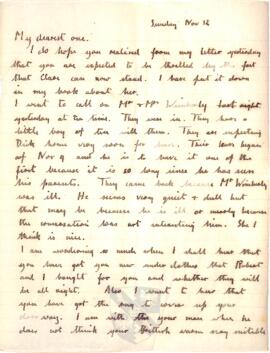 Sunday Nov 12
My dearest one.
I do hope you realised from my letter yesterday
that you are expected to be thrilled by the fact
that Clare can now stand. I have put it down
in my book about her.
I went to call on Mr & Mrs Wimberly
yesterday at tea time. They were in. They have a
little boy of ten with them. They are expecting
Dick home very soon for leave. Their leave began
on Nov 9 and he is to have it one of the
first because it is so long since he has seen
his parents. They came back because Mr Wimberly
was ill. He seems very quiet & dull but
that may be because he is ill or merely because
the conversation was not interesting him. She I
think is nice.
I am wondering so much when I shall hear that
you have got your new under clothes that Robert
and I bought for you and whether they will
be all right. Also I want to hear that
you have got the to serve up your
way. I am with the your man when he
does not think your British warm very suitable